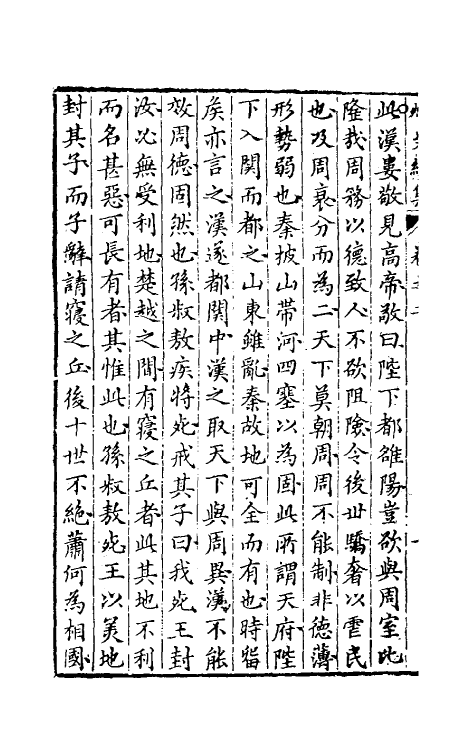 此漢婁敬見高帝敬曰陛下都雒陽豈欲與周室比
隆哉周務以德致人不欲阻險令後世驕奢以虐民
也及周衰分而為二天下莫朝周周不能制非德薄
形勢弱也秦披山帶河四塞以為固此所謂天府陛
下入関而都之山東雖亂秦故地可全而有也時留
矦亦言之漢遂都関中漢之取天下與周異漢不能
效周德固然也孫叔敖疾將死戒其子曰我死王封
汝必無受利地楚越之間有寝之丘者此其地不利
而名甚惡可長有者其惟此也孫叔敖死王以美地
封其子而子辭請寝之丘後十世不絶蕭何為相國